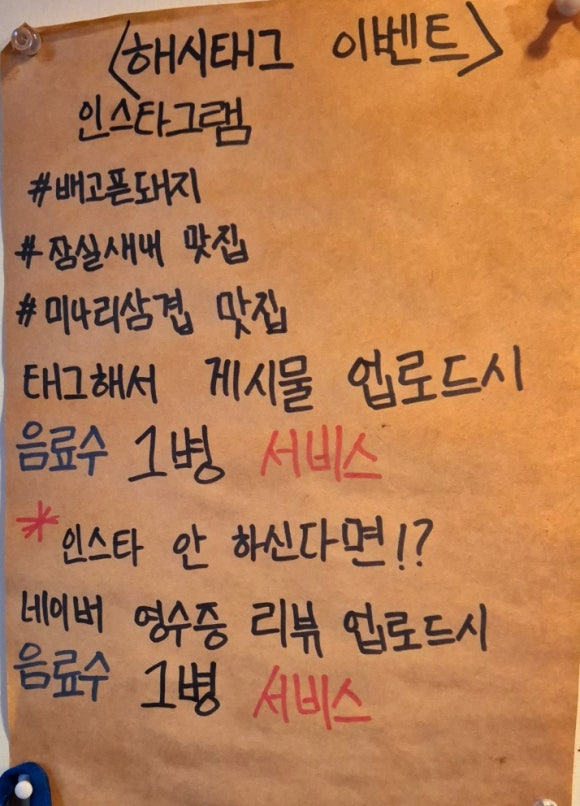 <해시태그 이벤트>
인스타그램
#배고픈돼지
#잠실새내 맛집
#미나리삼겹 맛집
태그해서 게시물 업로드시
음료수 1병 서비스
*인스타 안 하신다면!?
네이버 영수증 리뷰 업로드시
음료수 1병 서비스